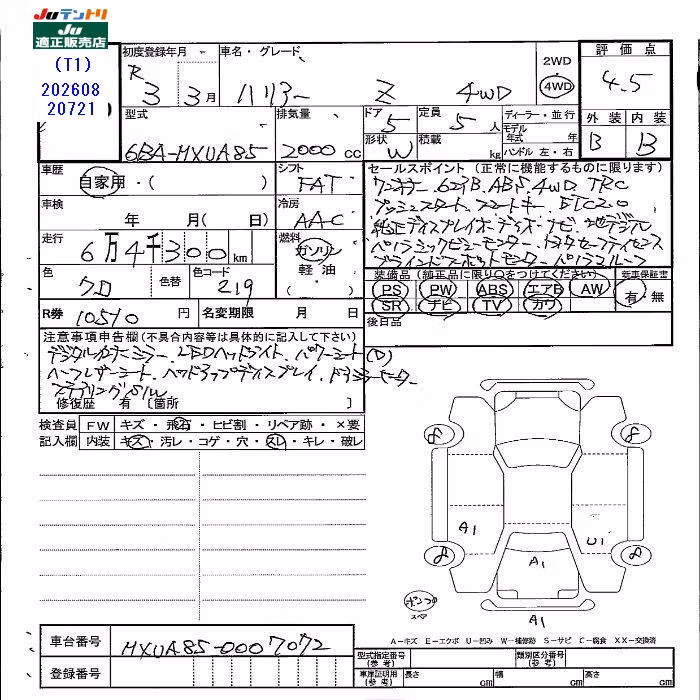 JUテントリ
JU
適正販売店
(T1)
202608
20721
初度登録年月
R 3 3月
車名・グレード
ハリアー Z 4WD
2WD
4WD
評価点
4.5
外装 内装
B B
型式
6BA-MXUA85
排気量
2000 cc
ドア
5
定員
5 人
形状
W
積載
kg
ディーラー・並行
モデル年式 年
ハンドル 左・右
車歴
自家用・( )
シフト
FAT
車検
年 月( 日)
冷房
AAC
走行
6万4千300km
燃料
ガソリン
軽油
( )
色
クロ
色替
色コード
219
R券 10510 円
名変期限 月 日
セールスポイント(正常に機能するものに限ります)
ワンオーナー.623B.ABS.4WD.TRC
プッシュスタート.スマートキー.ETC2.0
純正ディスプレイオーディオ・ナビ.地デジTV
パノラミックビューモニター.トヨタセーフティセンス
ブラインドスポットモニター.パノラマルーフ
装備品(純正品に限り○をつけてください)
PS PW ABS エアB AW
SR ナビ TV カワ
新車保証書
有・無
後日品
注意事項申告欄(不具合内容等は具体的に記入して下さい)
デジタルインナーミラー.LEDヘッドライト.パワーシート(D)
ハーフレザーシート.ヘッドアップディスプレイ.
ステアリングSW
修復歴 有 〔箇所 〕
検査員記入欄
FW キズ・飛石・ヒビ割・リペア跡・×要
内装 キズ・汚レ・コゲ・穴・スレ・キレ・破レ
8 8
A1 U1
8 8
A1
パンク
スペア
A1
A-キズ E-エクボ U-凹み W-補修跡 S-サビ C-腐食 XX-交換済
車台番号 MXUA85-0007072
登録番号
型式指定番号(参考)
類別区分番号(参考)
車庫証明用(参考) 長さ cm 幅 cm 高さ cm